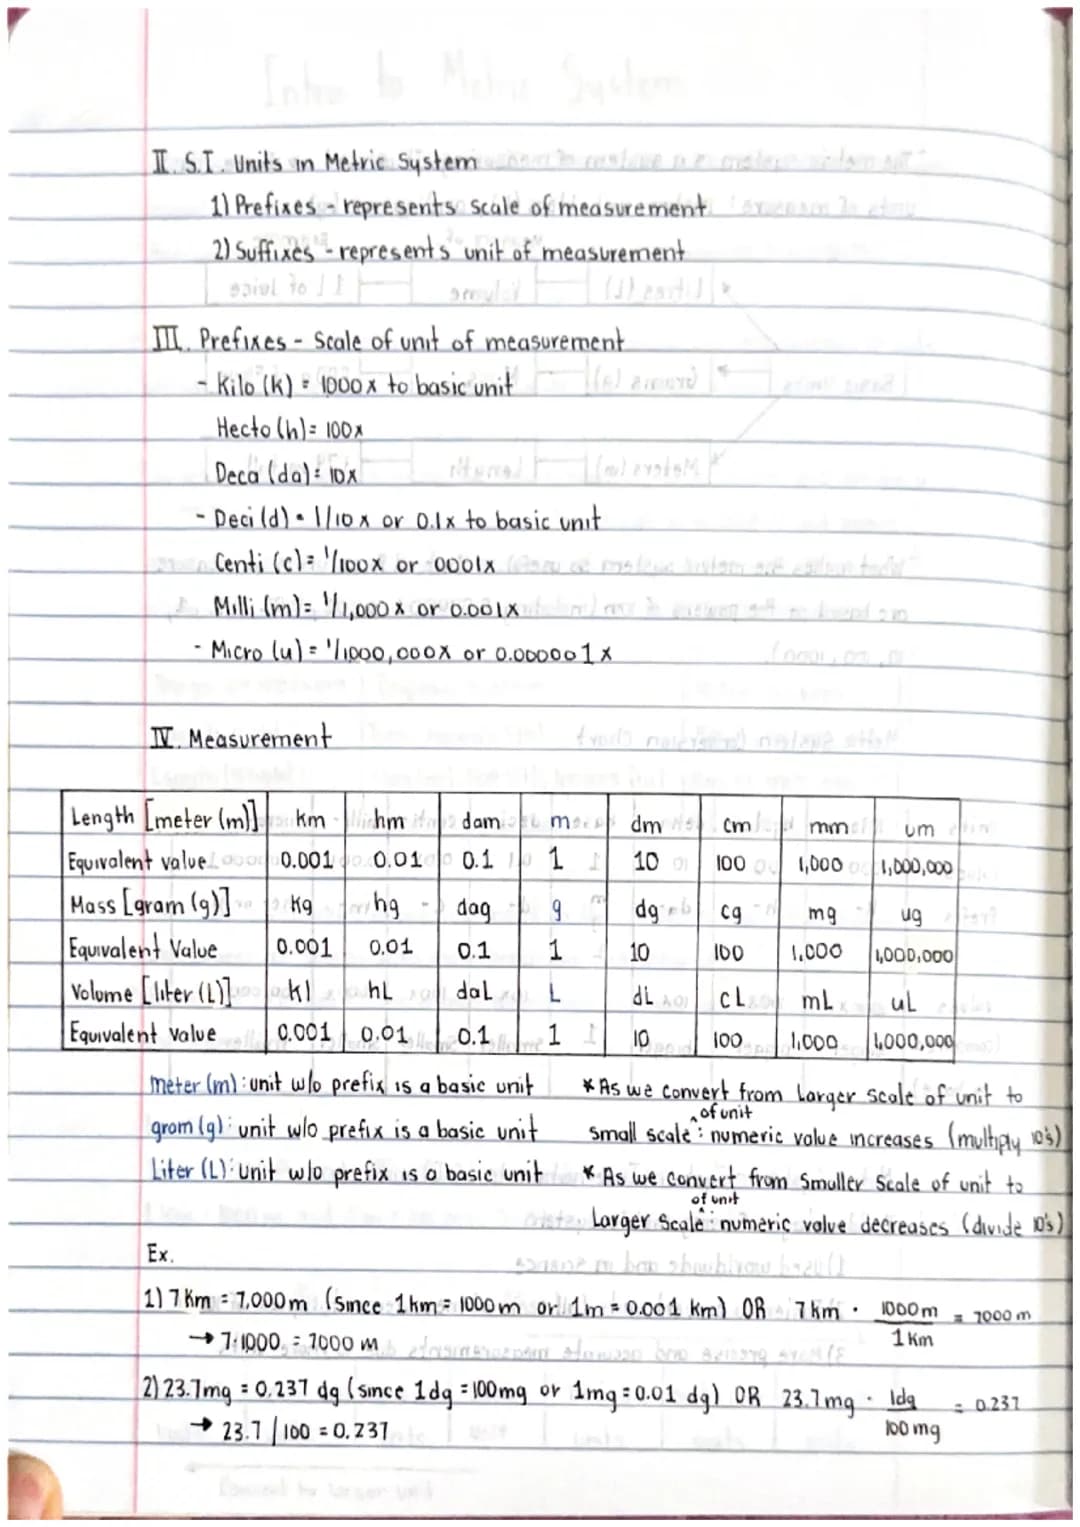 II. S.I. Units in Metric System
1) Prefixes - represents scale of measurement
2) Suffixes - represents unit of measurement
III. Prefixes - Scale of unit of measurement
- Kilo (k) = 1000x to basic unit
Hecto (h) = 100x
Deca (da) = 10x
- Deci (d) = 1/10x or 0.1x to basic unit
Centi (c) = 1/100x or 0001x
Milli (m) = 1/1,000x or 0.001x
- Micro (u) = 1/1000,000x or 0.000001x
IV. Measurement
Length [meter (m)] km hm dam m dm cm mm um
Equivalent value 0.001 0.01 0.1 1 10 100 1,000 1,000,000
Mass [gram (g)] kg hg dag g dg cg mg ug
Equivalent Value 0.001 0.01 0.1 1 10 100 1,000 1,000,000
Volume [liter (L)] kl hL daL L dL cL mL uL
Equivalent value 0.001 0.01 0.1 1 10 100 1,000 1,000,000
meter (m): unit w/o prefix is a basic unit
gram (g): unit w/o prefix is a basic unit
Liter (L): unit w/o prefix is a basic unit
* As we convert from Larger scale of unit to
small scale ^of unit: numeric value increases (multiply 10's)
* As we convert from Smaller Scale of unit to
Larger Scale ^of unit: numeric value decreases (divide 10's)
Ex.
1) 7 Km = 7,000 m (Since 1 km = 1000 m or 1 m = 0.001 km) OR 7 km · 1000 m / 1 Km = 7000 m
→ 7·1000 = 7000 m
2) 23.7mg = 0.237 dg (since 1dg = 100mg or 1mg = 0.01 dg) OR 23.7 mg · 1dg / 100 mg = 0.237
→ 23.7 / 100 = 0.237